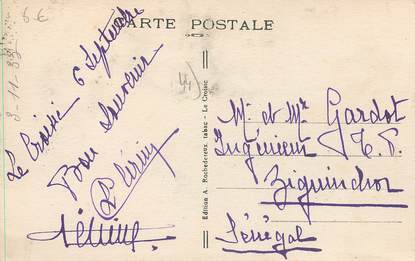 CARTE POSTALE
6€
Le Croisic 6 Septembre
Bon Souvenir
Edition A. Rochedereux, tabac - Le Croisic
Mr et Me Gardot
Ingénieur T.P.
Ziguinchor
Sénégal